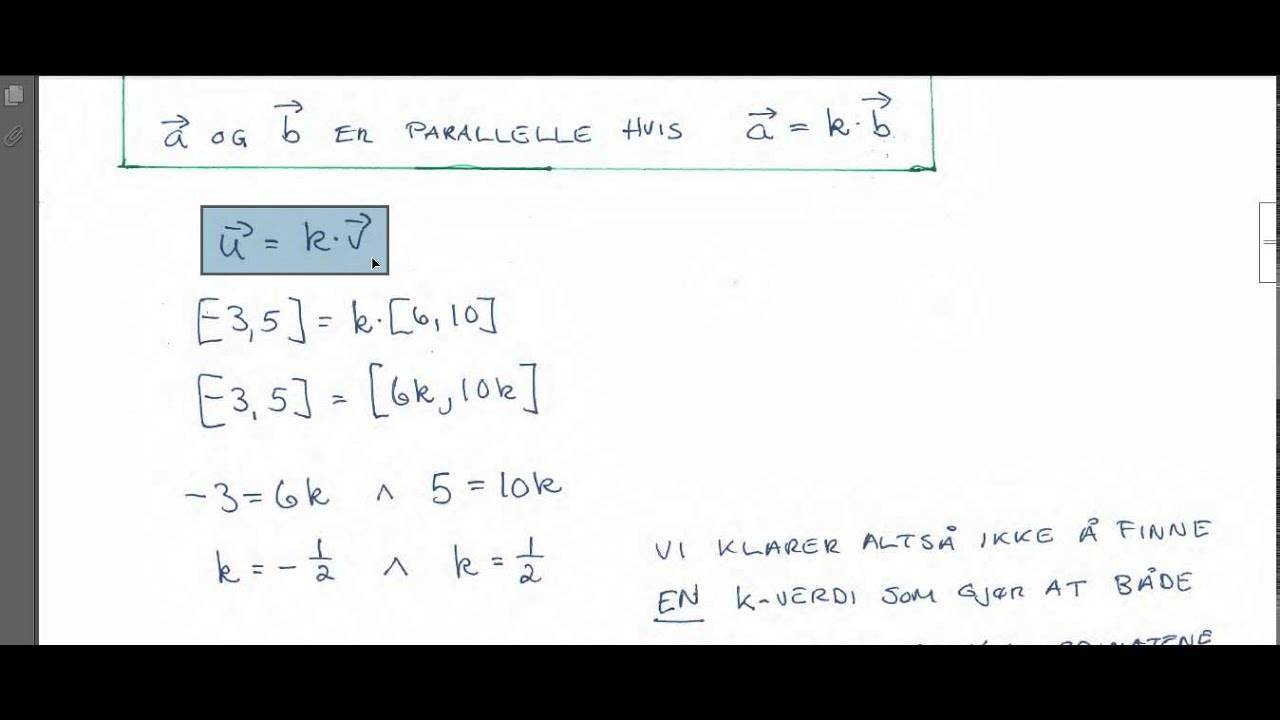 a⃗ OG b⃗ ER PARALLELLE HVIS a⃗ = k·b⃗
u⃗ = k·v⃗
[-3,5] = k·[6,10]
[-3,5] = [6k,10k]
-3=6k ∧ 5=10k
k=-1/2 ∧ k=1/2
VI KLARER ALTSÅ IKKE Å FINNE
EN K-VERDI SOM GJØR AT BÅDE